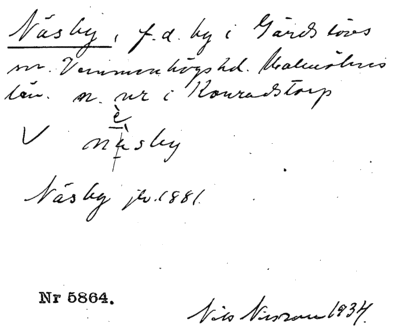 Näsby, f.d. by i Gärdslövs
sn. Vemmenhögs hd. Malmöhus
län. n. nr i Konradstorp
è
V näsby
Näsby jb. 1881.
Nr 5864.
Nils Nilsson 1934.